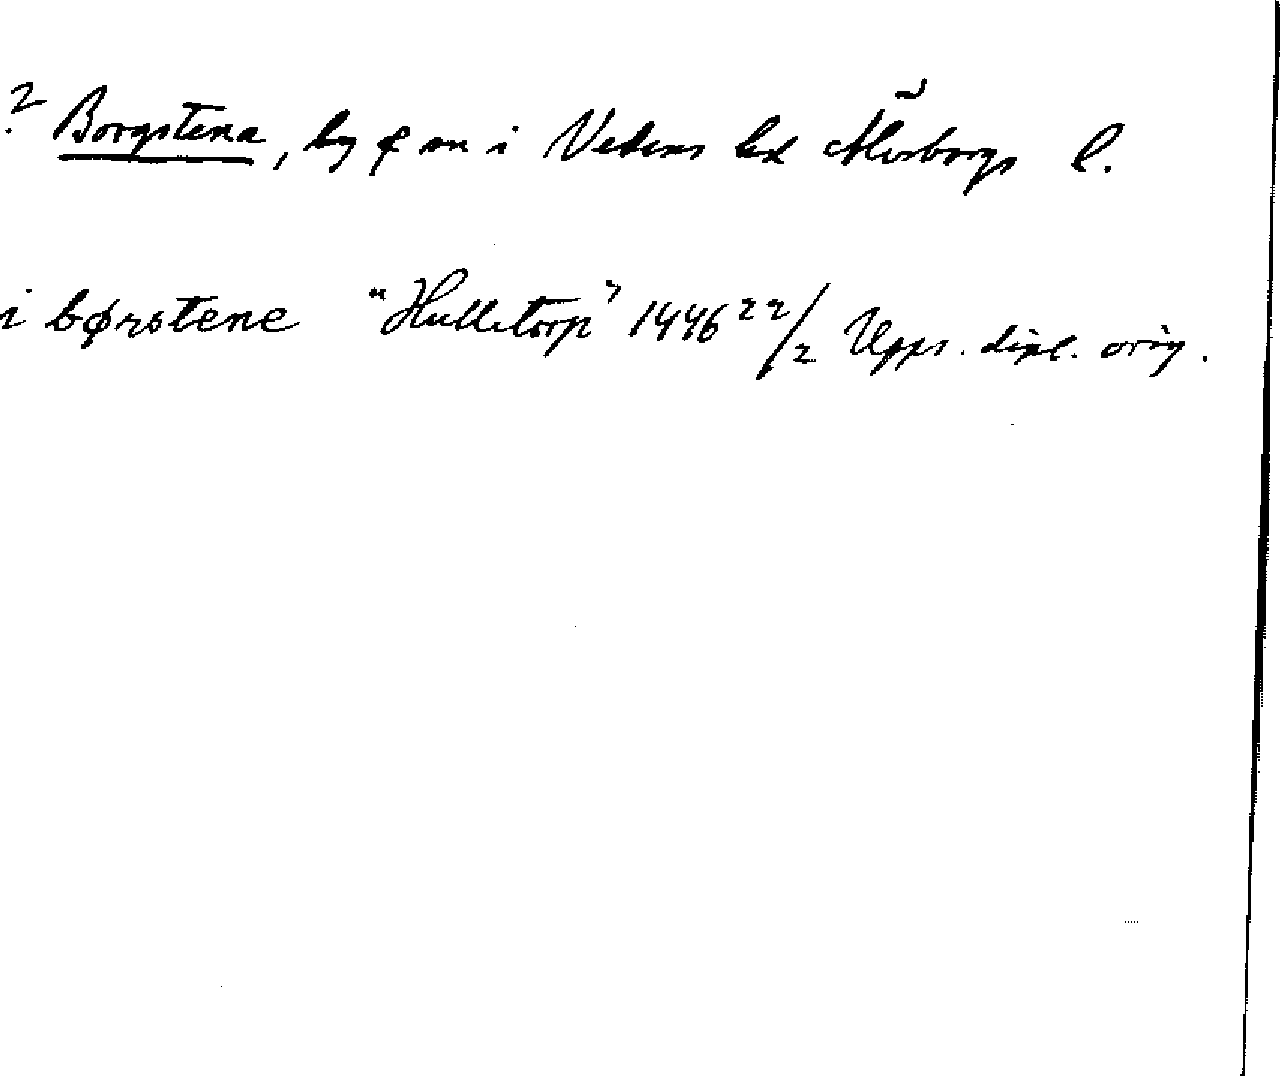 ? Borgstena, by & sn i Vedens hd Älvsborgs l.
i børstene "Hulletorp" 1446 22/2 Upps. dipl. orig.